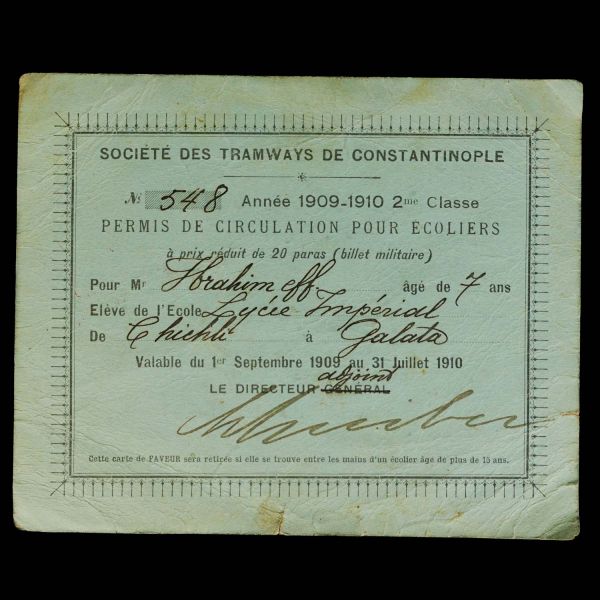 SOCIÉTÉ DES TRAMWAYS DE CONSTANTINOPLE
№ 548 Année 1909-1910 2me Classe
PERMIS DE CIRCULATION POUR ÉCOLIERS
à prix réduit de 20 paras (billet militaire)
Pour Mr Ibrahim eff âgé de 7 ans
Elève de l'Ecole Lycée Impérial
De Chichli à Galata
Valable du 1er Septembre 1909 au 31 Juillet 1910
adjoint
LE DIRECTEUR GÉNÉRAL
Cette carte de FAVEUR sera retirée si elle se trouve entre les mains d'un écolier âge de plus de 15 ans.